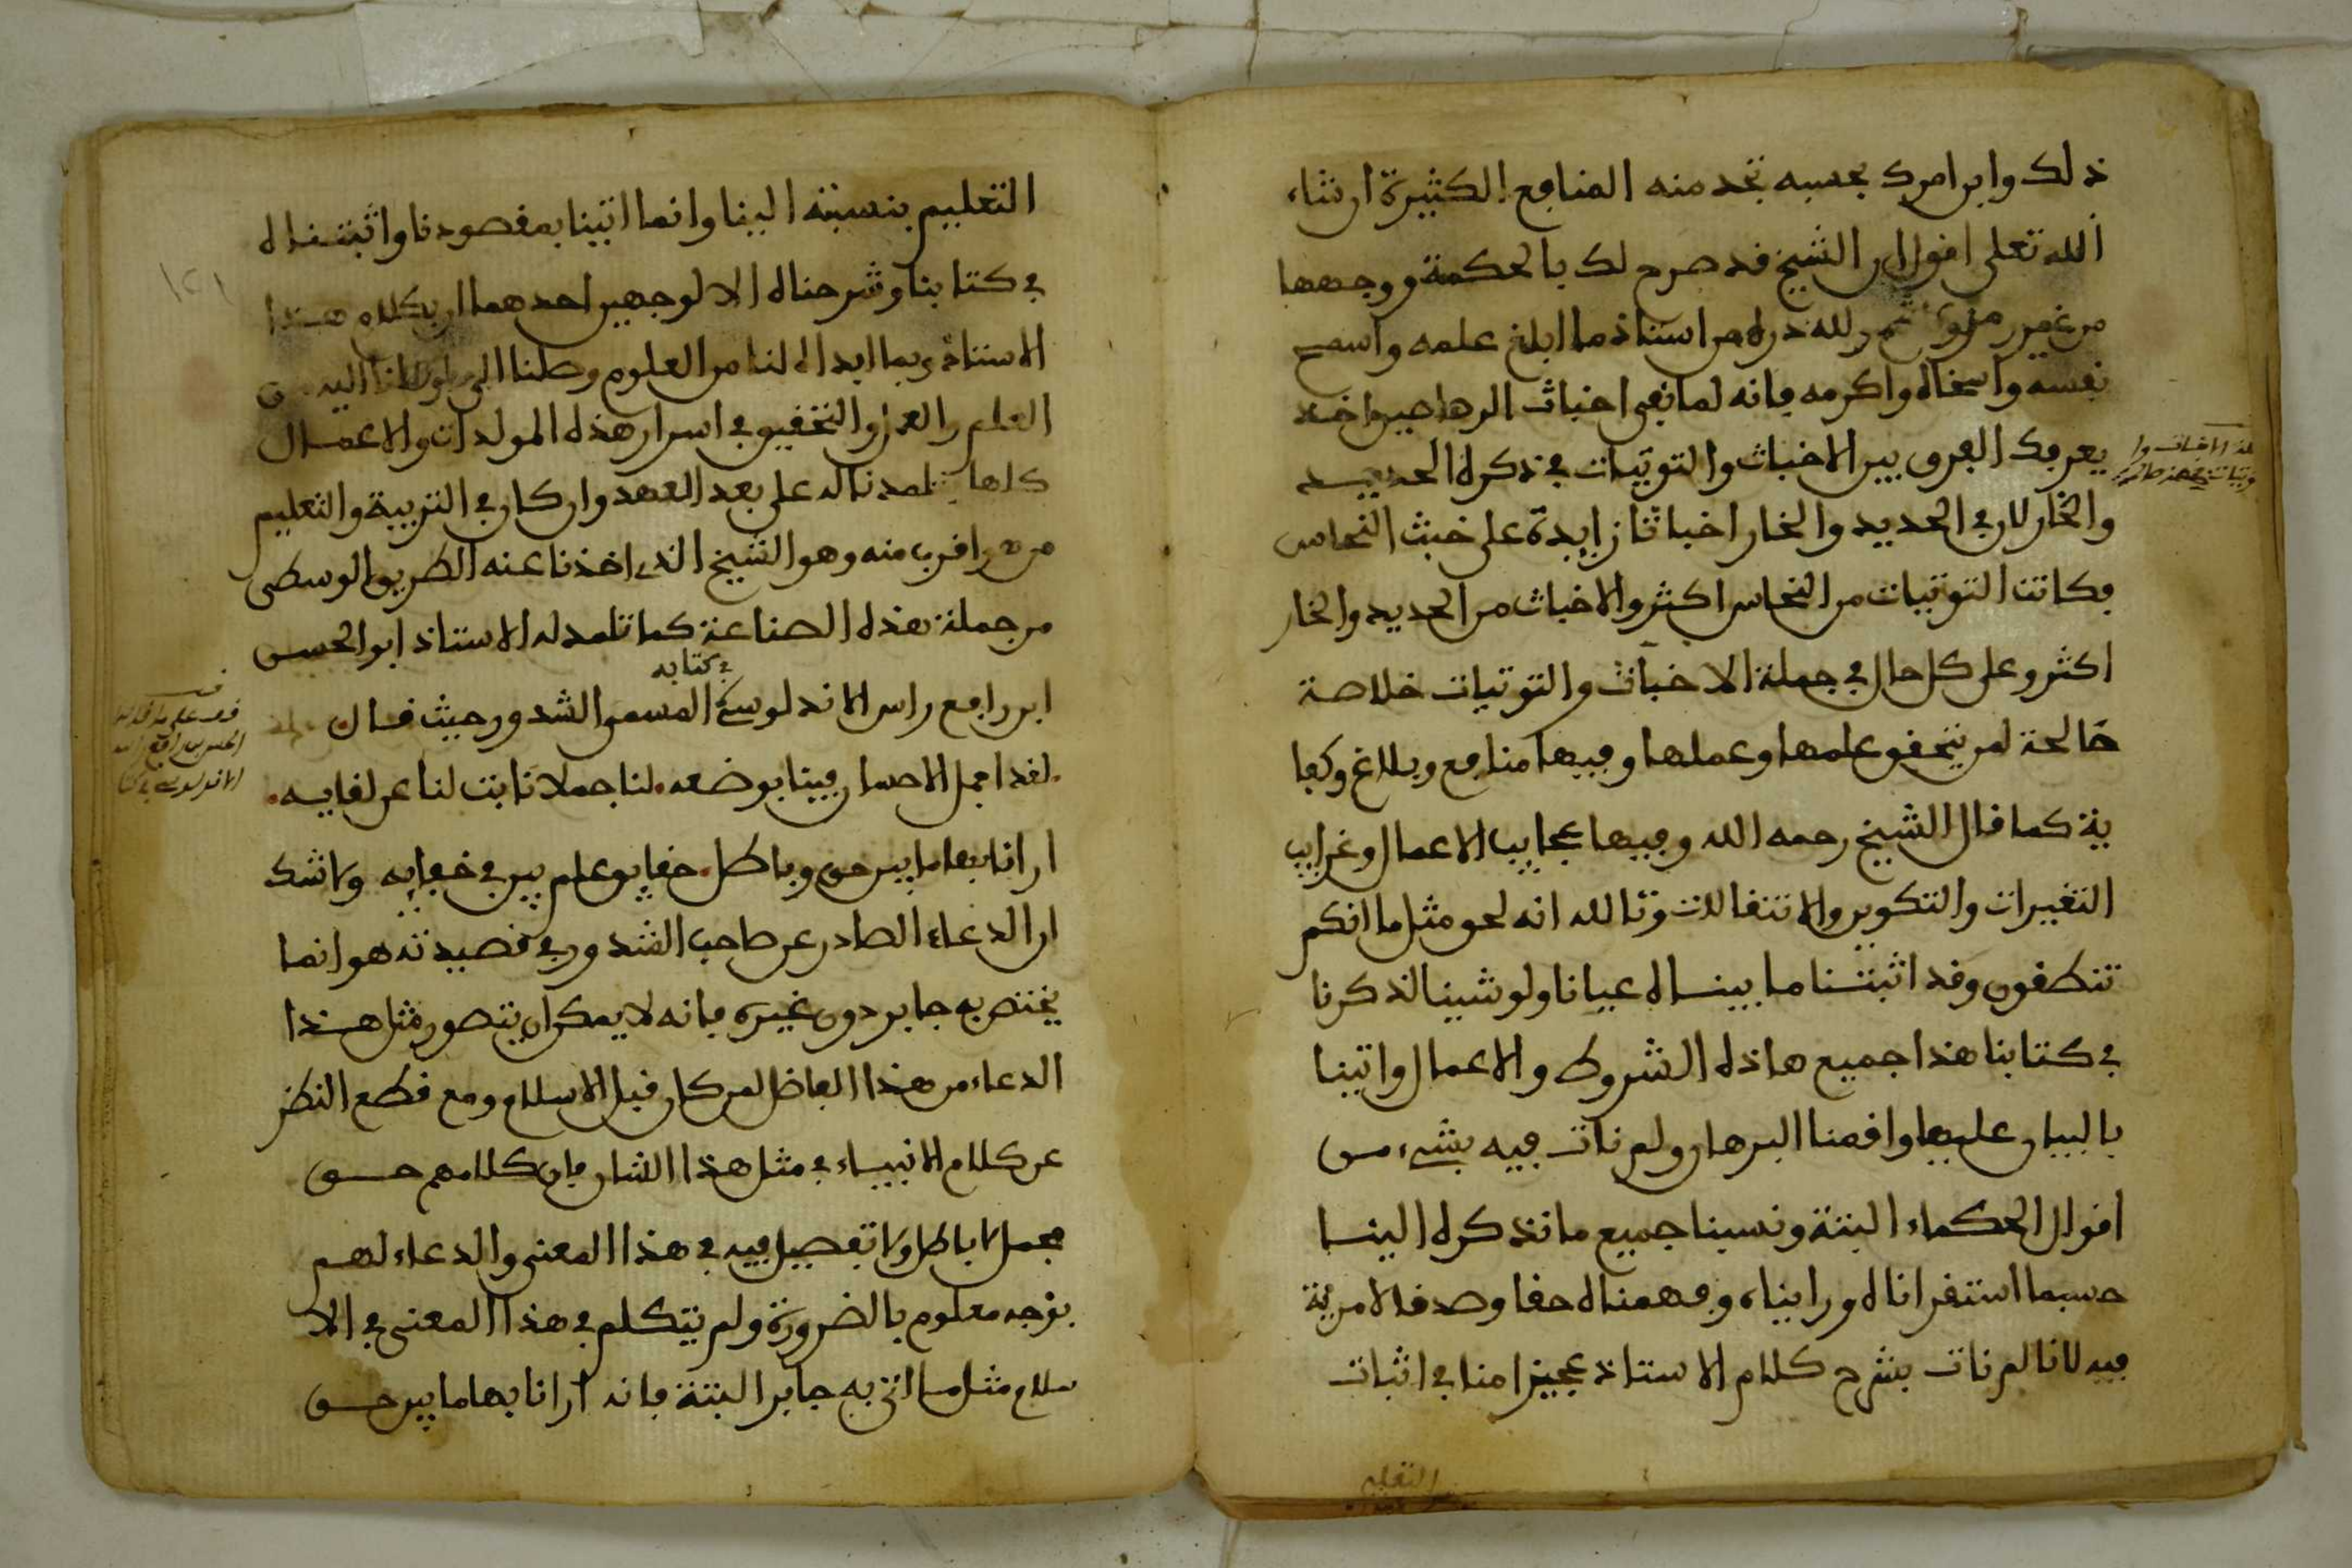 ذلك وابن امرك بحسبه تجد منه المنافع الكثيرة ان شاء
الله تعلى اقول ان الشيخ قد صرح لك بالحكمة ووجهها
من غير رمز لله دره من استاذ ما ابلغ علمه واسمح
نفسه واسخاه واكرمه فانه لما نفى اخباث الرهاصين اخذ
يعرفك الفرق بين الاخباث والتوتيات في ذكره الحديد
والخار لان في الحديد والخار اخباثا زايدة على خبث النحاس
فكانت التوتيات من النحاس اكثر والاخباث من الحديد والخار
اكثر وعلى كل حال في جملة الاخباث والتوتيات خلاصة
صالحة لمن يتحقق علمها وعملها وفيها منافع وبلاغ وكفا
ية كما قال الشيخ رحمه الله وفيها عجايب الاعمال وغرايب
التغييرات والتكوين والانتقالات وتالله انه لحق مثل ما انكم
تنطقون وقد اثبتنا ما بيناه عيانا ولو شينا لذكرنا
في كتابنا هذا جميع هاذه الشروط والاعمال واتينا
بالبيان عليها واقمنا البرهان ولم نات فيه بشيء من
اقوال الحكماء البتة ونسبنا جميع ما نذكره الينا
حسبما استقراناه ورايناه وفهمناه حقا وصدقا لا مرية
فيه لانا لم نات بشرح كلام الاستاذ عجزا منا في اثبات
التعليم
التعليم بنسبته الينا وانما اتينا بمقصودنا واثبتناه
في كتابنا وشرحناه الا لوجهين احدهما ان بكلام هذا
الاستاذ وبما ابداه لنا من العلوم وصلنا الى ما وصلنا اليه من
العلم والعمل والتحقيق في اسرار هذه المولدات والاعمال
كلها تلمدنا له على بعد العهد وان كان في التربية والتعليم
من هو اقرب منه وهو الشيخ الذي اخذنا عنه الطريق الوسطى
من جملة هذه الصناعة كما تلمد له الاستاذ ابو الحسن
ابن رافع راس الاندلوسي في كتابه المسمى الشدور حيث قال
لقد اجمل الاحسان فينا بوضعه لنا جملا نابت لنا عن لقايه
ارانا بها ما بين حق وباطل حقايق علم بين في خفايه ولا شك
ان الدعاء الصادر عن صاحب الشدور في قصيدته هو انما
يختص به جابر دون غيره فانه لا يمكن ان يتصور مثل هذا
الدعاء من هذا الفاضل لمن كان قبل الاسلام ومع قطع النظر
عن كلام الانبياء في مثل هذا الشان فان كلامهم حق
مجمل لا باطل ولا تفصيل فيه في هذا المعنى والدعاء لهم
بوجه معلوم بالضرورة ولم يتكلم في هذا المعنى في الا
سلام مثل ما اتى به جابر البتة فانه ارانا بها ما بين حق